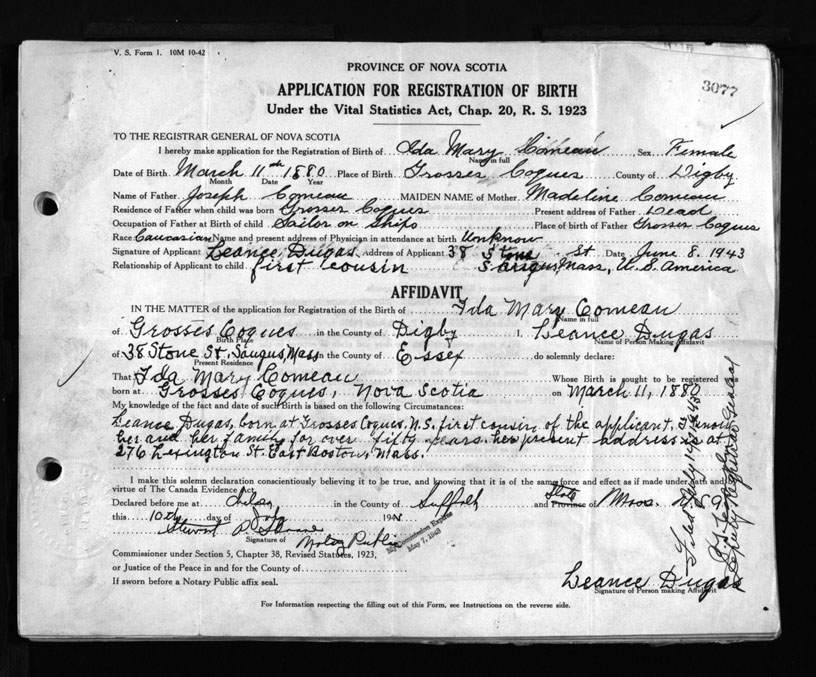 V. S. Form 1. 10M 10-42
3077
PROVINCE OF NOVA SCOTIA
APPLICATION FOR REGISTRATION OF BIRTH
Under the Vital Statistics Act, Chap. 20, R. S. 1923
TO THE REGISTRAR GENERAL OF NOVA SCOTIA
I hereby make application for the Registration of Birth of Ida Mary Comeau Sex Female
Name in full
Date of Birth March 11th 1880 Place of Birth Grosses Coques County of Digby
Month Date Year
Name of Father Joseph Comeau MAIDEN NAME of Mother Madeline Comeau
Residence of Father when child was born Grosses Coques Present address of Father Dead
Occupation of Father at Birth of child Sailor on Ships Place of birth of Father Grosses Coques
Race Caucasian Name and present address of Physician in attendance at birth Unknow
Signature of Applicant Leance Dugas Address of Applicant 38 Stone St Date June 8. 1943
Relationship of Applicant to child first cousin Saugus, Mass, U.S. America
AFFIDAVIT
IN THE MATTER of the application for Registration of the Birth of Ida Mary Comeau
Name in full
of Grosses Coques in the County of Digby I, Leance Dugas
Birth Place Name of Person Making Affidavit
of 38 Stone St. Saugus, Mass in the County of Essex do solemnly declare:
Present Residence
That Ida Mary Comeau Whose Birth is sought to be registered
born at Grosses Coques, Nova Scotia on March 11, 1880
My knowledge of the fact and date of such Birth is based on the following Circumstances:
Leance Dugas, born at Grosses Coques, N.S. first cousin of the applicant, as know
her and her family for over fifty years. her present address is at
276 Lexington St. East Boston, Mass.
I make this solemn declaration conscientiously believing it to be true, and knowing that it is of the same force and effect as if made under oath and by
virtue of The Canada Evidence Act.
Declared before me at in the County of Suffolk State and Province of Mass
this 10th day of 194
My Commission Expires
May 7, 1948
Signature of Notary Public
Commissioner under Section 5, Chapter 38, Revised Statutes, 1923,
or Justice of the Peace in and for the County of
If sworn before a Notary Public affix seal.
Leance Dugas
Signature of Person making Affidavit
For Information respecting the filling out of this Form, see Instructions on the reverse side.
Filed July 14
Deputy Registrar General